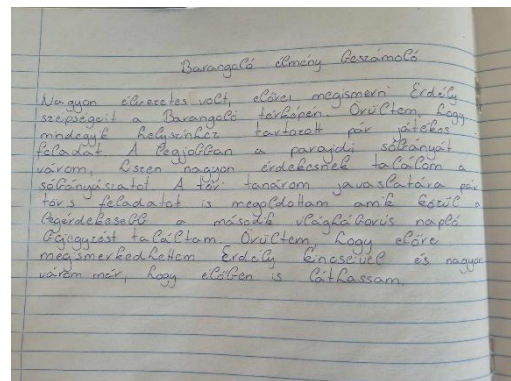 Barangoló élmény beszámoló
Nagyon élvezetes volt, előre megismerni Erdély
szépségeit a Barangoló térképén. Örültem, hogy
mindegyik helyszínhez tartozott pár játékos
feladat. A legjobban a parajdi sóbányát
várom, hiszen nagyon érdekesnek találom a
sóbányászatot. A töri tanárom javaslatára pár
töris feladatot is megoldottam amik közül a
legérdekesebb a második világháborús napló
bejegyzést találtam. Örültem, hogy előre
megismerkedhettem Erdély kincseivel és nagyon
várom már, hogy élőben is láthassam.